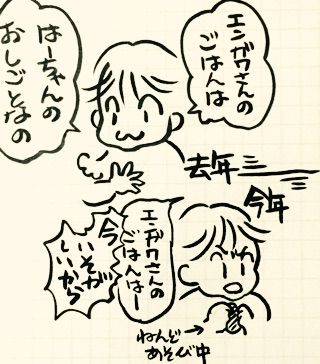 エンガワさんの
ごはんは
はーちゃんの
おしごとなの
去年
今年
エンガワさんの
ごはんはー
今
いそが
しいから
ねんど
あそび中